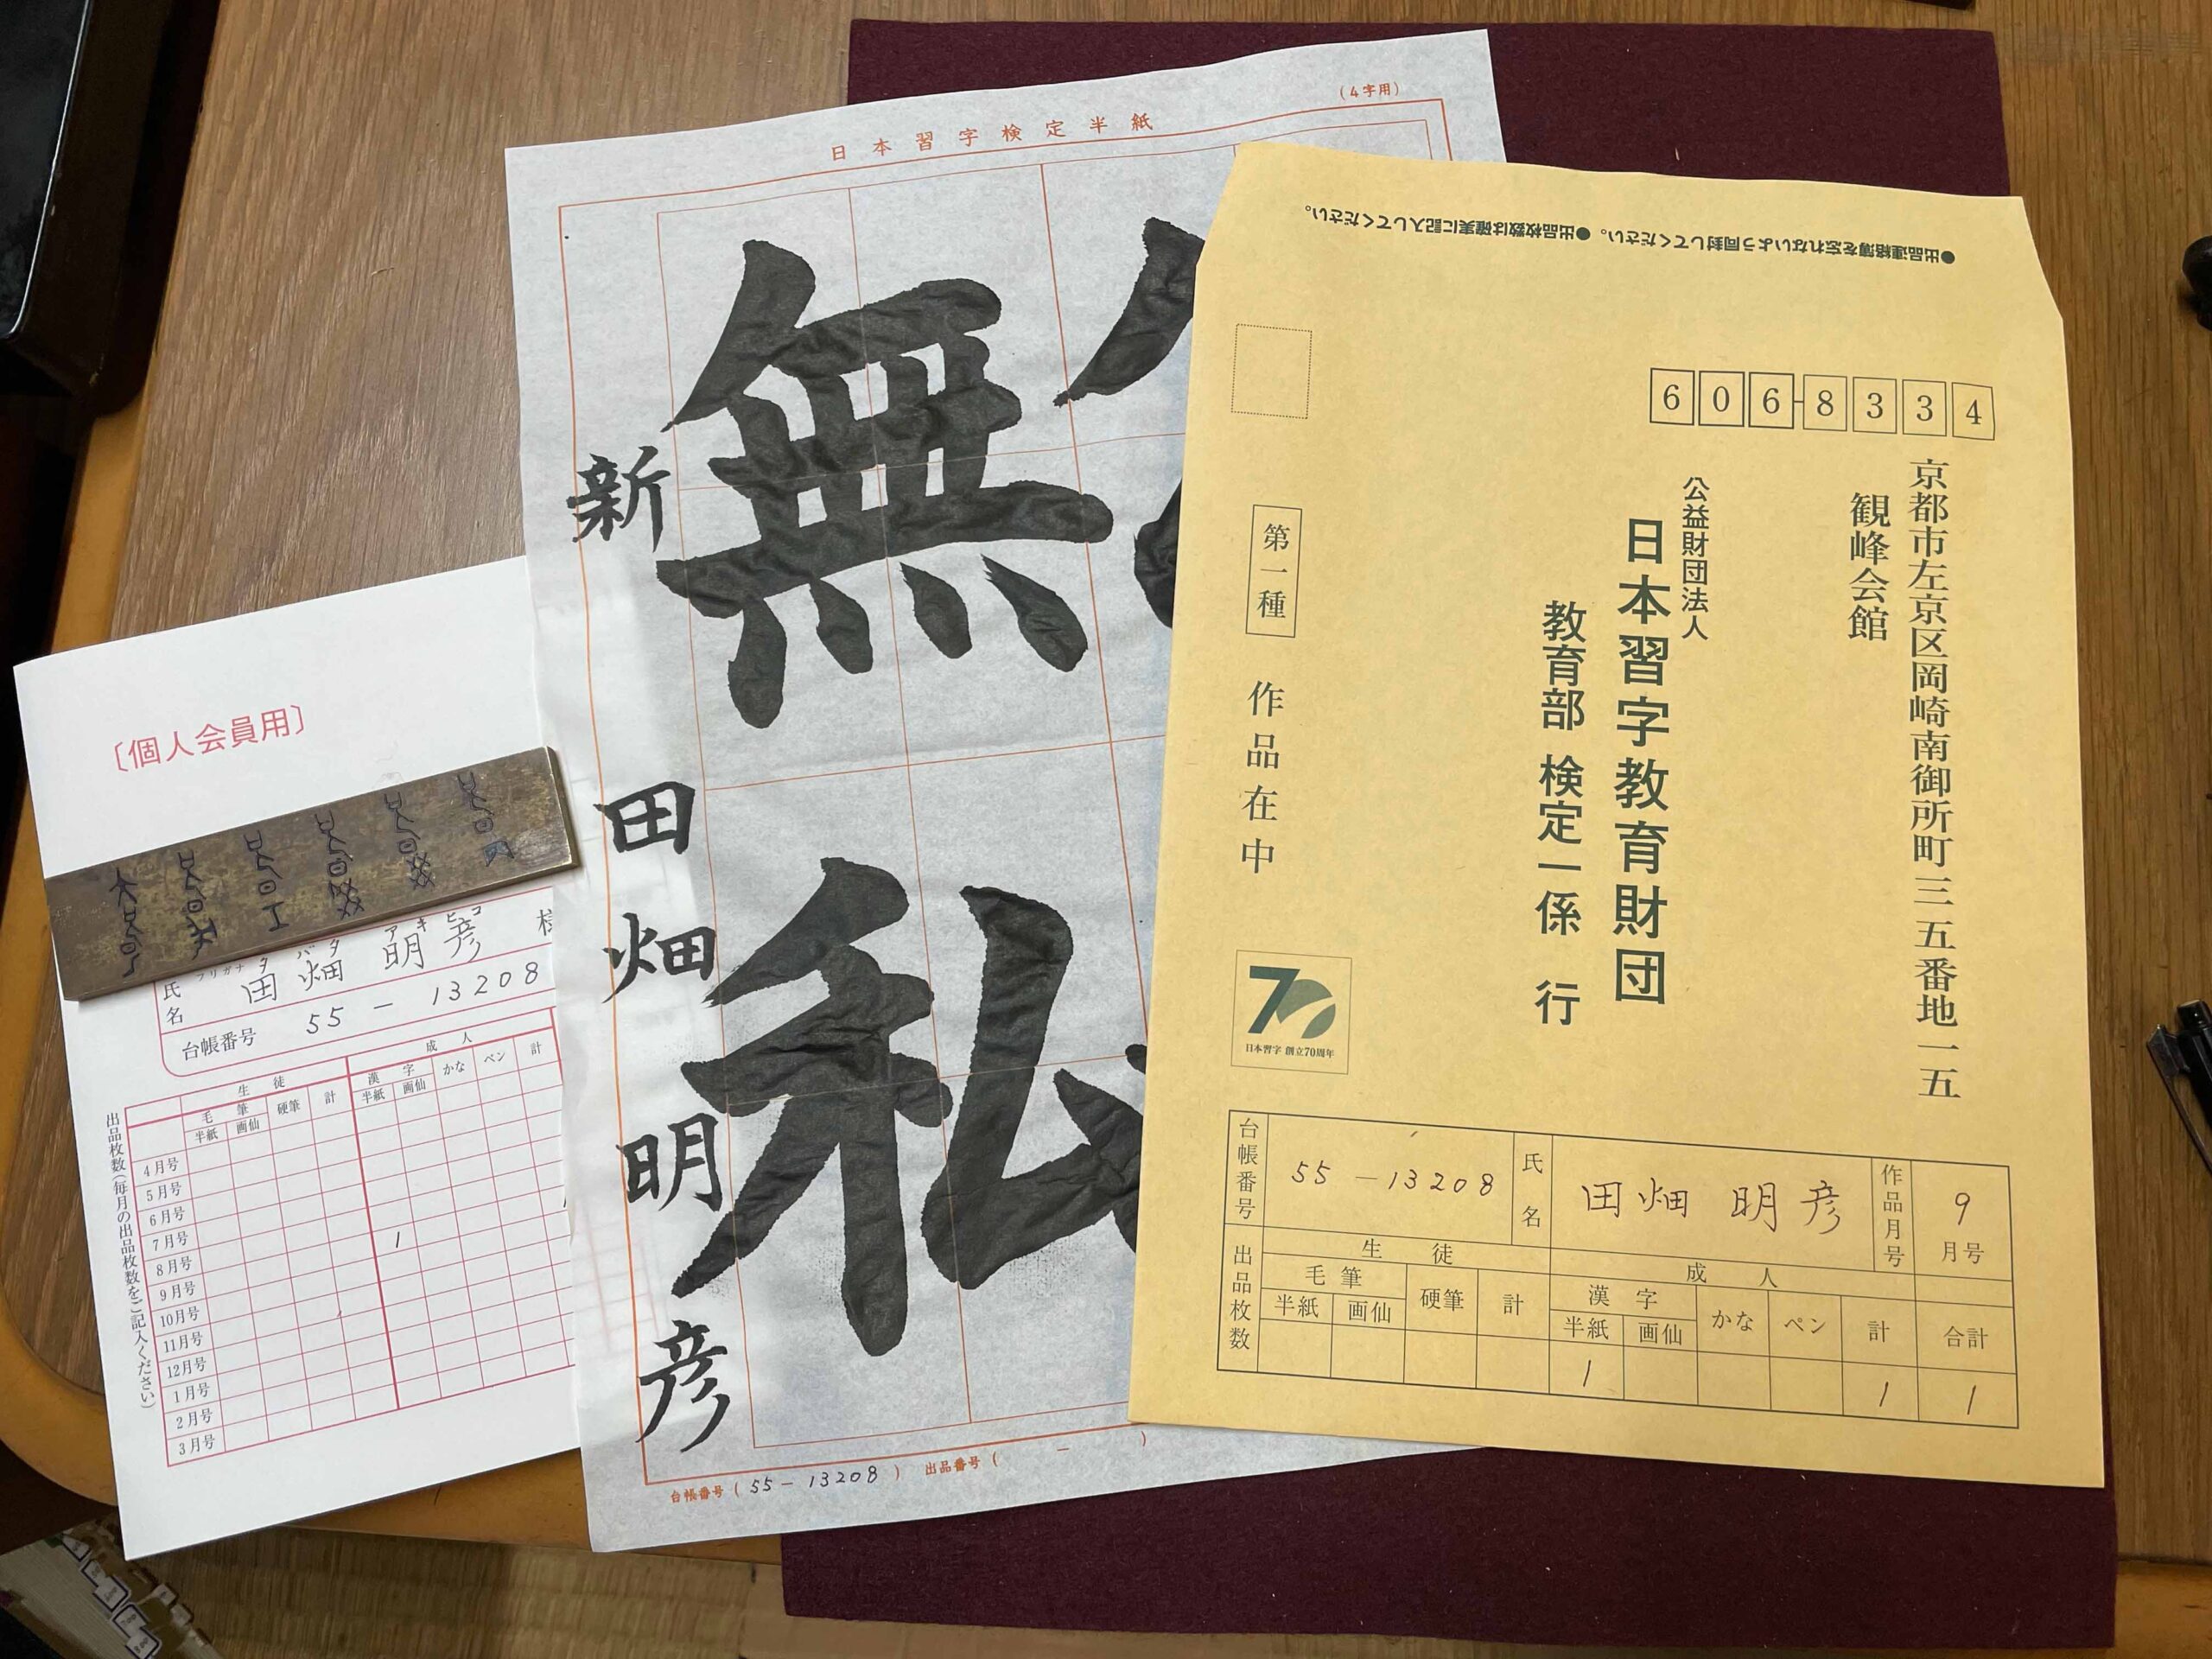 〔個人会員用〕
フリガナ タ バタ アキ ヒコ
氏名 田畑 明彦
台帳番号 55-13208
出品枚数(毎月の出品枚数をご記入ください)
生徒 成人
毛筆 硬筆 計 漢字 かな ペン 計
半紙 画仙 半紙 画仙
4月号
5月号
6月号
7月号
8月号 1
9月号
10月号
11月号
12月号
1月号
2月号
3月号
日本習字検定半紙
(4字用)
無
私
新 田畑明彦
台帳番号(55-13208) 出品番号( - )
●出品連絡簿を忘れないよう同封してください。●出品枚数は確実に記入してください。
606-8334
京都市左京区岡崎南御所町三五番地一五
観峰会館
公益財団法人
日本習字教育財団
教育部 検定一係 行
第一種
作品在中
70
日本習字 創立70周年
台帳番号 55-13208 氏名 田畑 明彦 作品月号 9月号
出品枚数
生徒 成人
毛筆 硬筆 計 漢字 かな ペン 計 合計
半紙 画仙 半紙 画仙
1 1 1